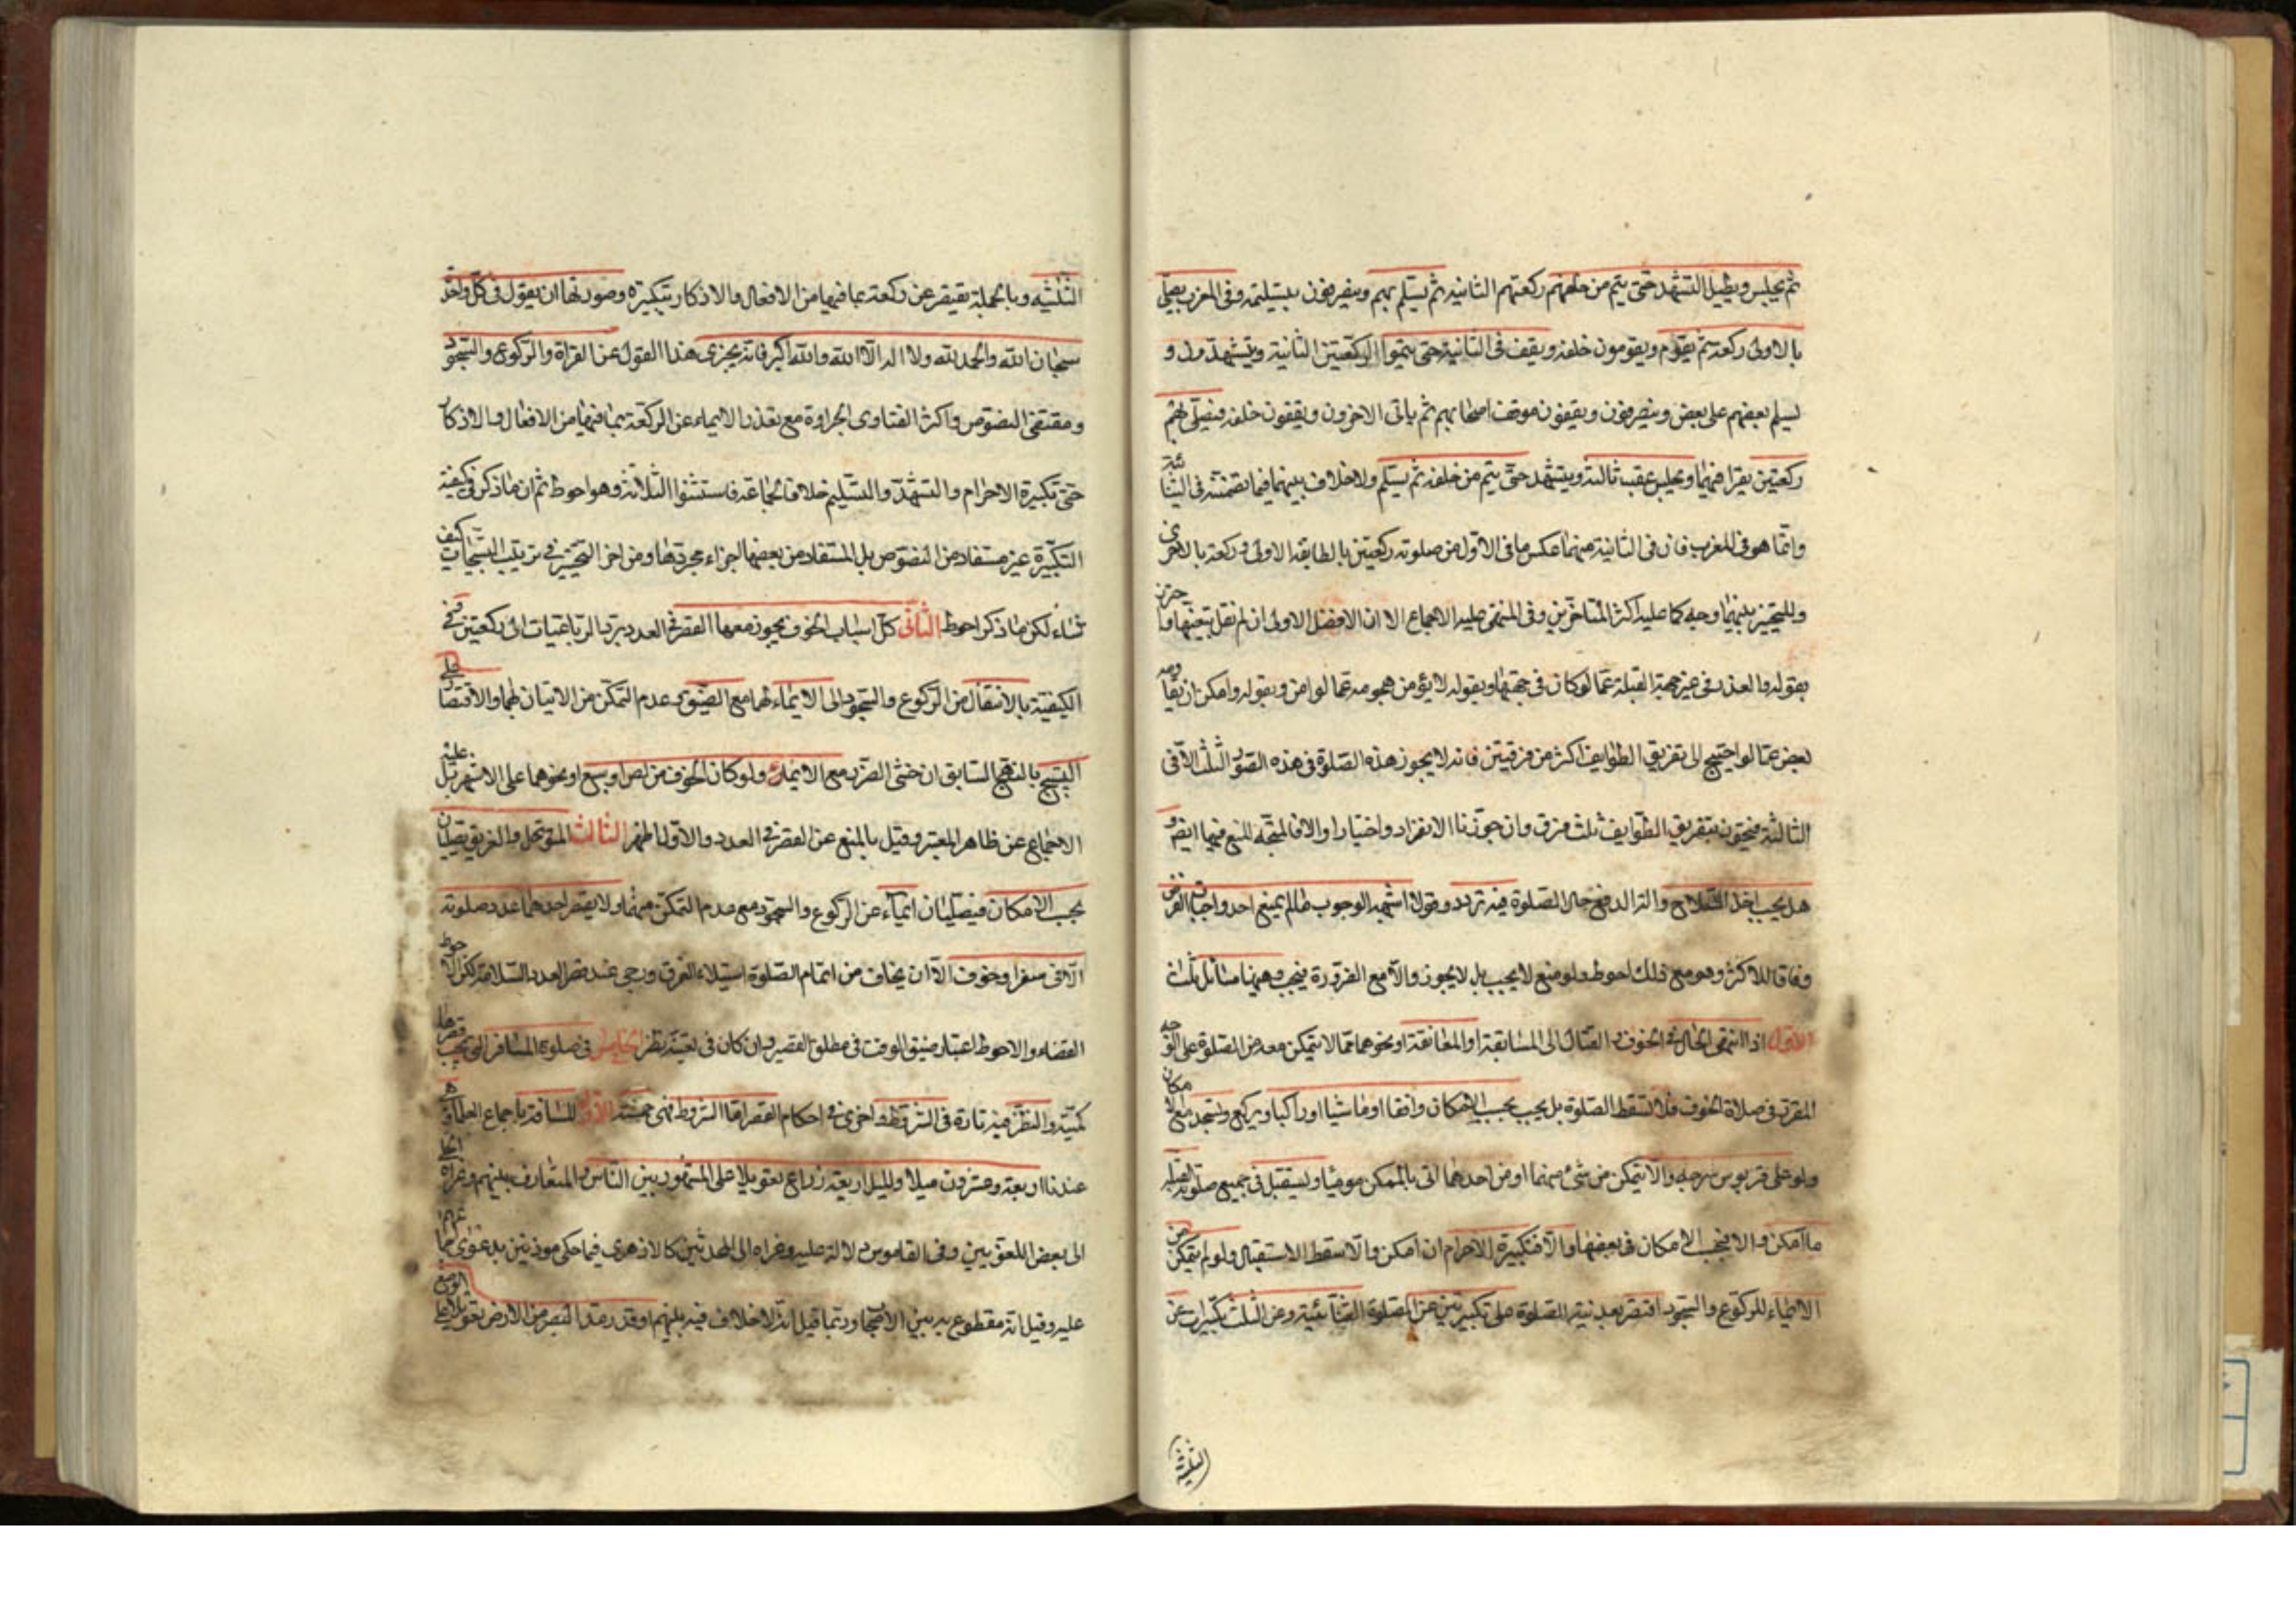 ثم يجلس ويطيل التشهد حتى يتم من خلفهم ركعتهم الثانية ثم يسلم بهم وينصرفون بتسليمه وفى المغرب يصلى
بالاولى ركعة ثم يقوم ويقومون خلفه ويقف فى الثانية حتى يتموا الركعتين الثانية ويتشهدون و
يسلم بعضهم على بعض وينصرفون ويقفون موقف اصحابهم ثم ياتى الاخرون ويقفون خلفه فيصلى بهم
ركعتين يقرا فيهما ويجلس عقيب ثالثة ويتشهد حتى يتم من خلفه ثم يسلم ولا خلاف بينهما فيما تضمنته فى الثنائية
وانما هو فى المغرب فان فى الثانية منهما عكس ما فى الاول من صلوته ركعتين بالطايفة الاولى وركعة بالاخرى
وللتخيير بينهما وجه كما عليه اكثر المتاخرين وفى المنتهى عليه الاجماع الا ان الافضل الاولى ان لم نقل بتعينها
بقوله والعدو فى غير جهة القبلة عما لو كان فى جهتها وبقوله لا يؤمن هجومه عما لو امن وبقوله وامكن ان يقاومه
بعض عما لو احتيج الى تفريق الطوايف اكثر من فرقتين فانه لا يجوز هذه الصلوة فى هذه الصور الثلث الا فى
الثالثة فيجوز بتفريق الطوايف ثلث فرق وان جوزنا الانفراد اختيارا والا فالمتجه المنع فيها ايضا و
هل يجب اخذ السلاح والة الدفع حال الصلوة فيه تردد وقولا اشبهه الوجوب ما لم يمنع احد واجبات الفرض
وفاقا للاكثر وهو مع ذلك احوط ولو منع لا يجب بل لا يجوز والا مع الضرورة فيجب وهيهنا مسائل ثلث
الاول اذا انتهى الحال فى الخوف والقتال الى المسايفة او المعانقة او نحوهما مما لا يتمكن معه من الصلوة على الوجه
المقرر فى صلاة الخوف فلا تسقط الصلوة بل يجب بحسب الامكان واقفا او ماشيا او راكبا ويركع ويسجد مع الامكان
ولو على قربوس سرجه والا يتمكن من شئ منهما او من احدهما اتى بالممكن موميا ويستقبل فى جميع صلوته القبلة
ما امكن والا فبحسب الامكان فى بعضها والا فتكبيرة الاحرام ان امكن والا سقط الاستقبال ولو لم يتمكن من
الايماء للركوع والسجود اقتصر بعد نية الصلوة على تكبيرتين عن الصلوة الثنائية وعن الثلث تكبيرات عن
الثلثية
الثلثية وبالجملة يقتصر عن ركعة بما فيها من الافعال والاذكار بتكبيرة وصورتها ان يقول فى كل واحد
سبحان الله والحمد لله ولا اله الا الله والله اكبر فانه يجزى هذا القول عن القراة والركوع والسجود
ومقتضى النصوص واكثر الفتاوى اجراؤه مع تعذر الايماء عن الركعة بما فيها من الافعال والاذكار
حتى تكبيرة الاحرام والتشهد والتسليم خلافا لجماعة فاستثنوا الثلاثة وهو احوط ثم ان ما ذكر فى كيفية
التكبيرة غير مستفاد من النصوص بل المستفاد من بعضها اجزاء مجردها ومن اخر التخيير فى ترتيب التسبيحات كيف
شاء لكن ما ذكر احوط الثانى كل اسباب الخوف يجوز معها القصر فى العدد برد الرباعيات الى ركعتين وفى
الكيفية بالانتقال من الركوع والسجود الى الايماء لهما مع الضيق وعدم التمكن من الاتيان بهما والاقتصار على
التسبيح بالنهج السابق ان خشى الضرر مع الايماء ولو كان الخوف من لص او سبع او نحوهما على الاشهر بل عليه
الاجماع عن ظاهر المعتبر وقيل بالمنع عن القصر فى العدد والاول اظهر الثالث المتوحل والغريق يصليان
بحسب الامكان فيصليان ايماء عن الركوع والسجود مع عدم التمكن منهما ولا يقصر احدهما عدد صلوته
الا فى سفر او خوف الا ان يخاف من اتمام الصلوة استيلاء الغرق ورجى عند قصر العدد السلامة لكن الاحوط
القضاء والاحوط اعتبار ضيق الوقت فى مطلق القصر وان كان فى تعينه نظر الخامس فى صلوة المسافر التى يجب قصرها
كمية والنظر فيه تارة فى الشروط واخرى فى احكام القصر اما الشروط فهى خمسة الاول المسافة باجماع العلماء
عندنا اربعة وعشرون ميلا والميل اربعة ذراع تعويلا على المشهور بين الناس والمتعارف بينهم وعزاه
الى بعض اللغويين وفى القاموس دلالة عليه وعزاه الى المحدثين كالازهرى فيما حكى موذنين بدعوى
عليه وقيل انه مقطوع به بين الاصحاب وربما قيل انه لا خلاف فيه بينهم او قدر مد البصر من الارض تعويلا على الوضع